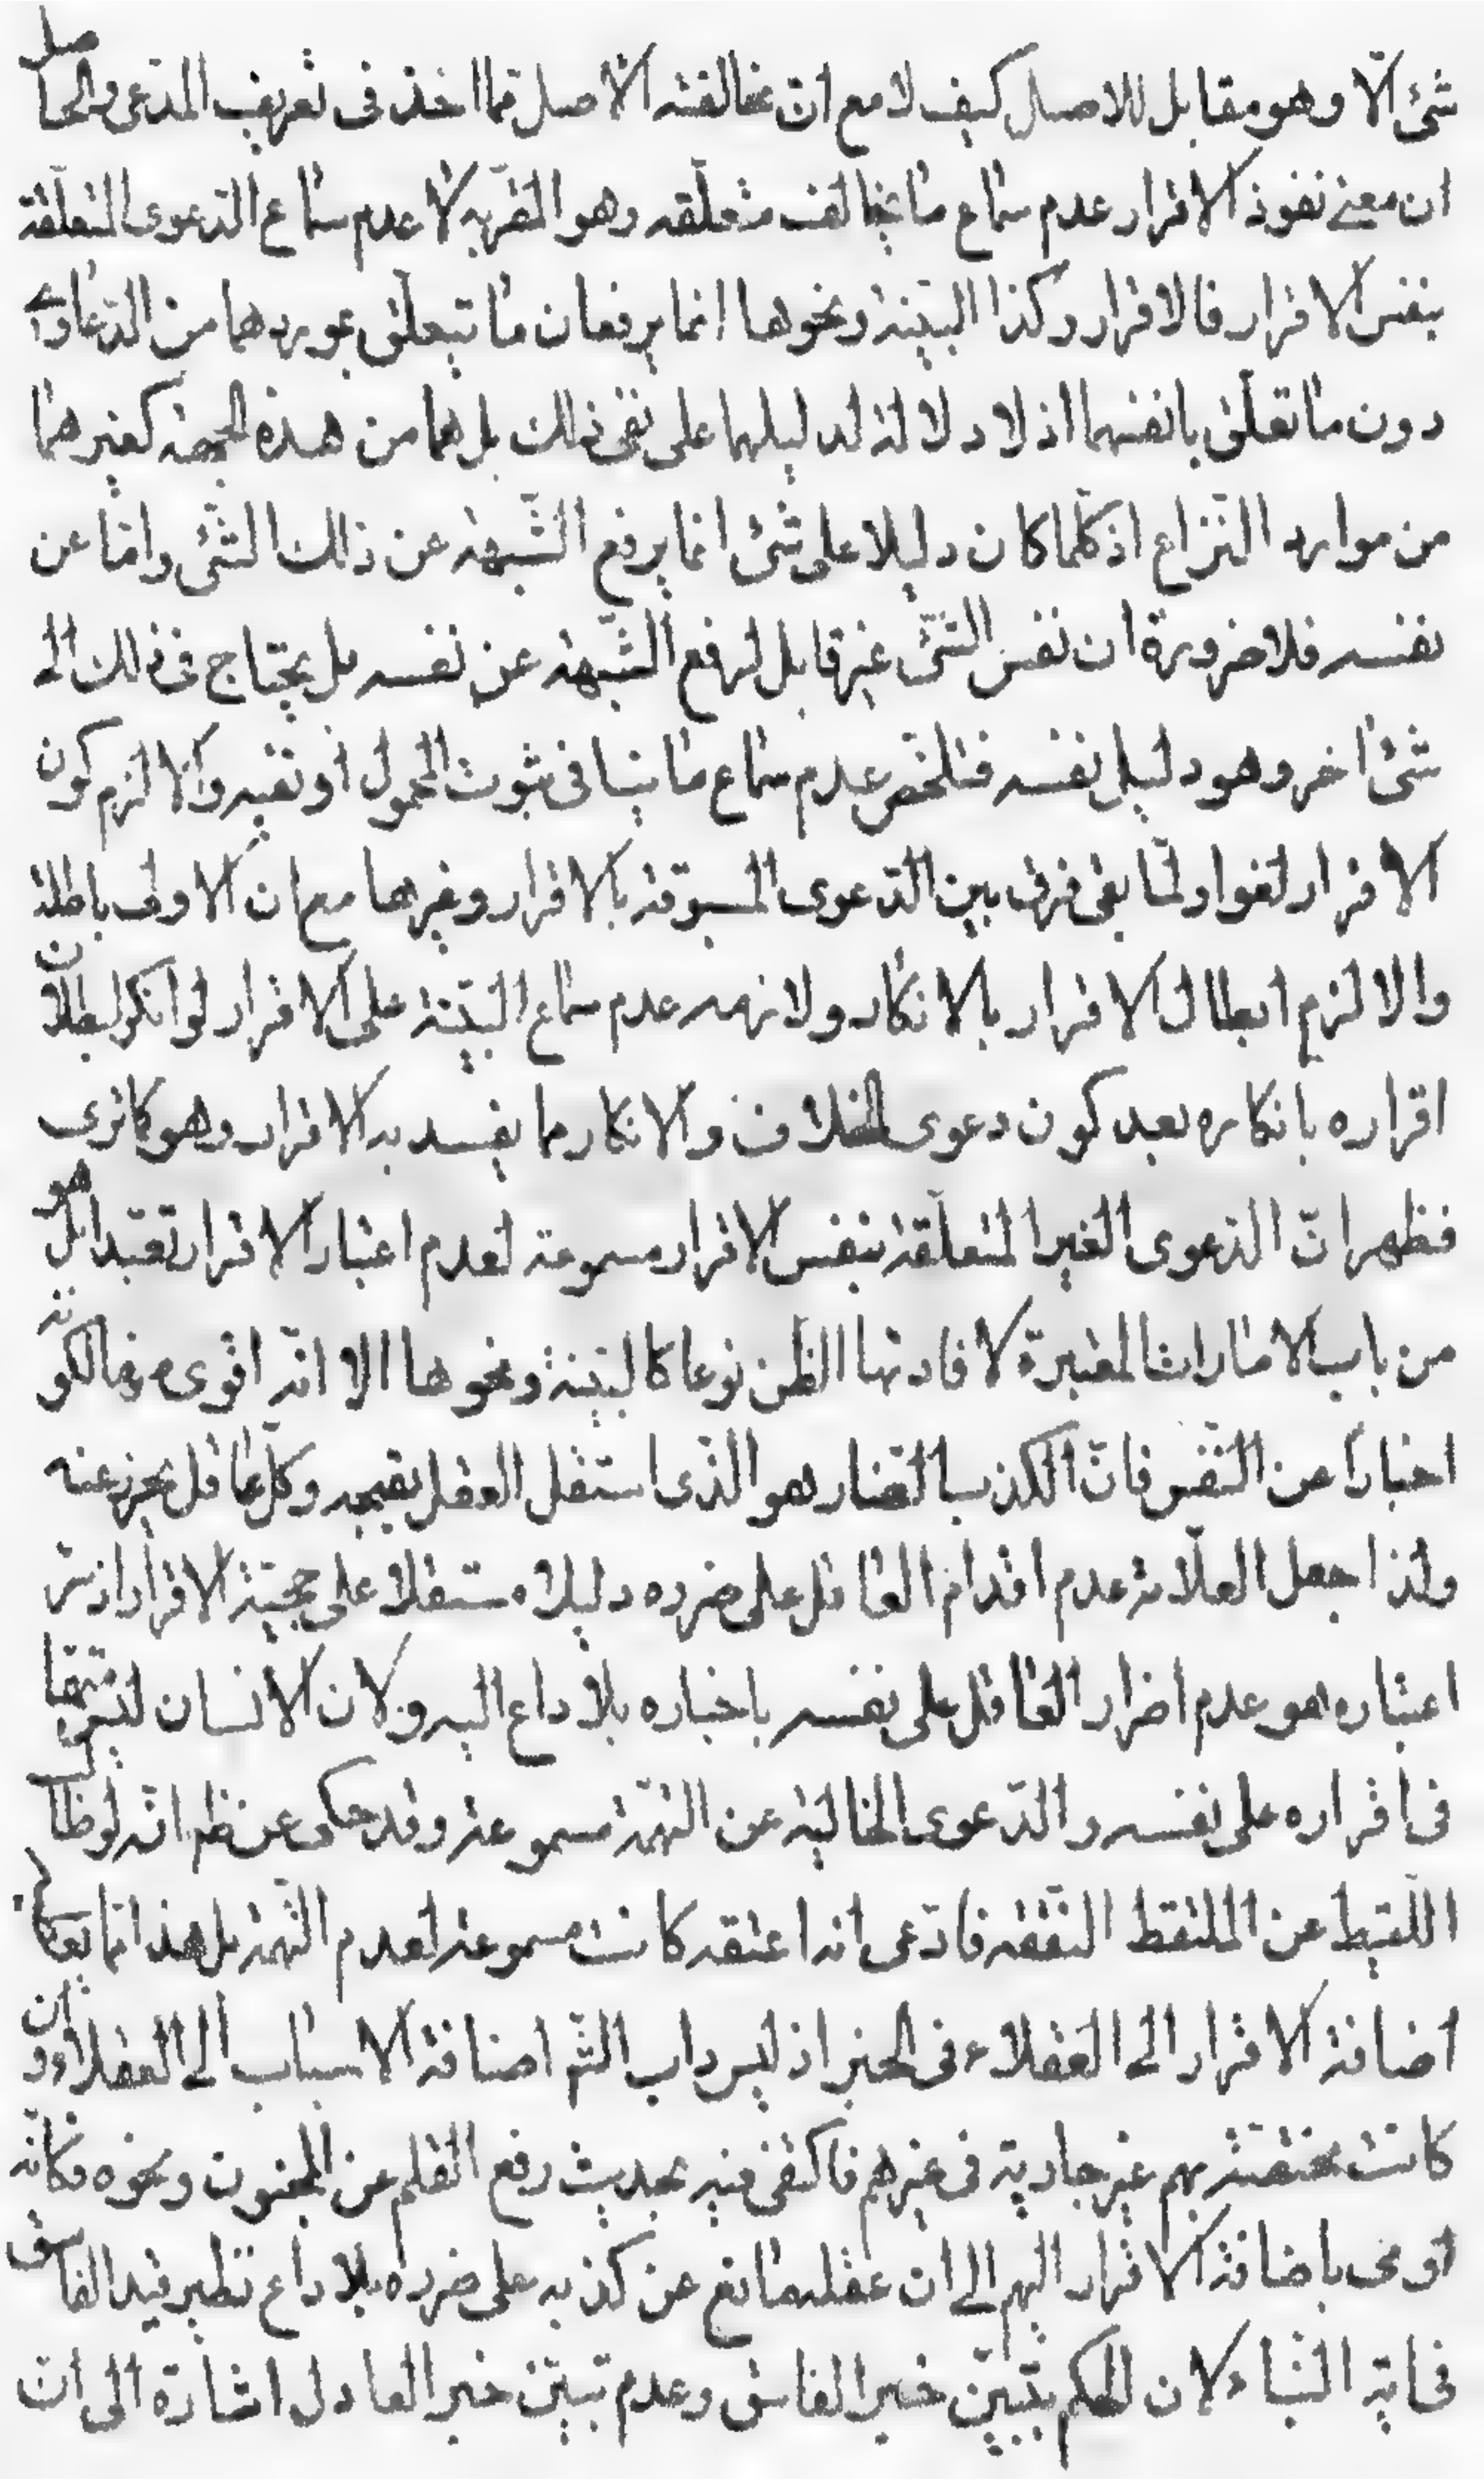 شئ الّا وهو مقابل للاصل كيف لا مع انّ مخالفته الاصل ممّا اخذ فى تعريف المدّعى والحاصل
ان معنى نفوذ الاقرار عدم سماع ما يخالف متعلّقه وهو المقرّ به لا عدم سماع الدّعوى المتعلّقة
بنفس الاقرار فالاقرار وكذا البيّنة ونحوها انما يرفعان ما تيعلّق بموردهما من الدّعاوى
دون ما تعلّق بانفسهما اذ لا دلالة لدليلهما على نفى ذلك بل هما من هذه الجهة كغيرهما
من موارد النّزاع اذ كلما كان دليلا على شئ انما يرفع الشّبهة عن ذلك الشّئ وامّا عن
نفسه فلا ضرورة ان نفس الشّئ غير قابل لرفع الشّبهة عن نفسه بل يحتاج فى ذلك الى
شئ اخر وهو دليل نفسه فتلخّص عدم سماع ما ينافى ثبوت المحمول او نفيه والا لزم كون
الاقرار لغوا ولمّا بقى فرق بين الدّعوى المسبوقة بالاقرار وغيرها مع ان الاولى باطلة
والا لزم ابطال الاقرار بالانكار ولازمه عدم سماع البيّنة على الاقرار لو انكر لبطلان
اقراره بانكاره بعد كون دعوى الخلاف والانكار مما يفسد به الاقرار وهو كما ترى
فظهر انّ الدّعوى الغير المتعلّقة بنفس الاقرار مسموعة لعدم اعتبار الاقرار تعبّدا بل هو
من باب الامارات المعتبرة لافادتها الظّن نوعا كالبيّنة ونحوها الا انّه اقوى منها لكونه
اخبارا عن النّفس فانّ الكذب الضّار هو الّذى استقل العقل بقبحه وكلّ عاقل يحرز عنه
ولذا جعل العلّامة عدم اقدام العاقل على ضرره دليلا مستقلا على حجيّة الاقرار اذ سرّ
اعتباره هو عدم اضرار العاقل على نفسه باخباره بلا داع اليه ولان الانسان ليس متّهما
فى اقراره على نفسه والدّعوى الخالية عن التّهمة مسموعة وقد حكى عن ظم انّه لو طالب
اللّقيط عن الملتقط النّفقة فادّعى انه اعتقه كانت مسموعة لعدم التّهمة بل هذا انما
اضافة الاقرار الى العقلاء فى الخبر اذ ليس داب الشّم اضافة الاسباب الى العقلاء وان
كانت مختصّة بهم غير جارية فى غيرهم فاكتفى فيه بحديث رفع القلم عن المجنون ونحوه فكانّه
اومى باضافة الاقرار اليهم الى ان عقلهم مانع عن كذبه على ضرره بلا داع نظير قيد الفاسق
فى اية النّباء لان الحكم بتبيّن خبر الفاسق وعدم تبيّن خبر العادل اشارة الى ان